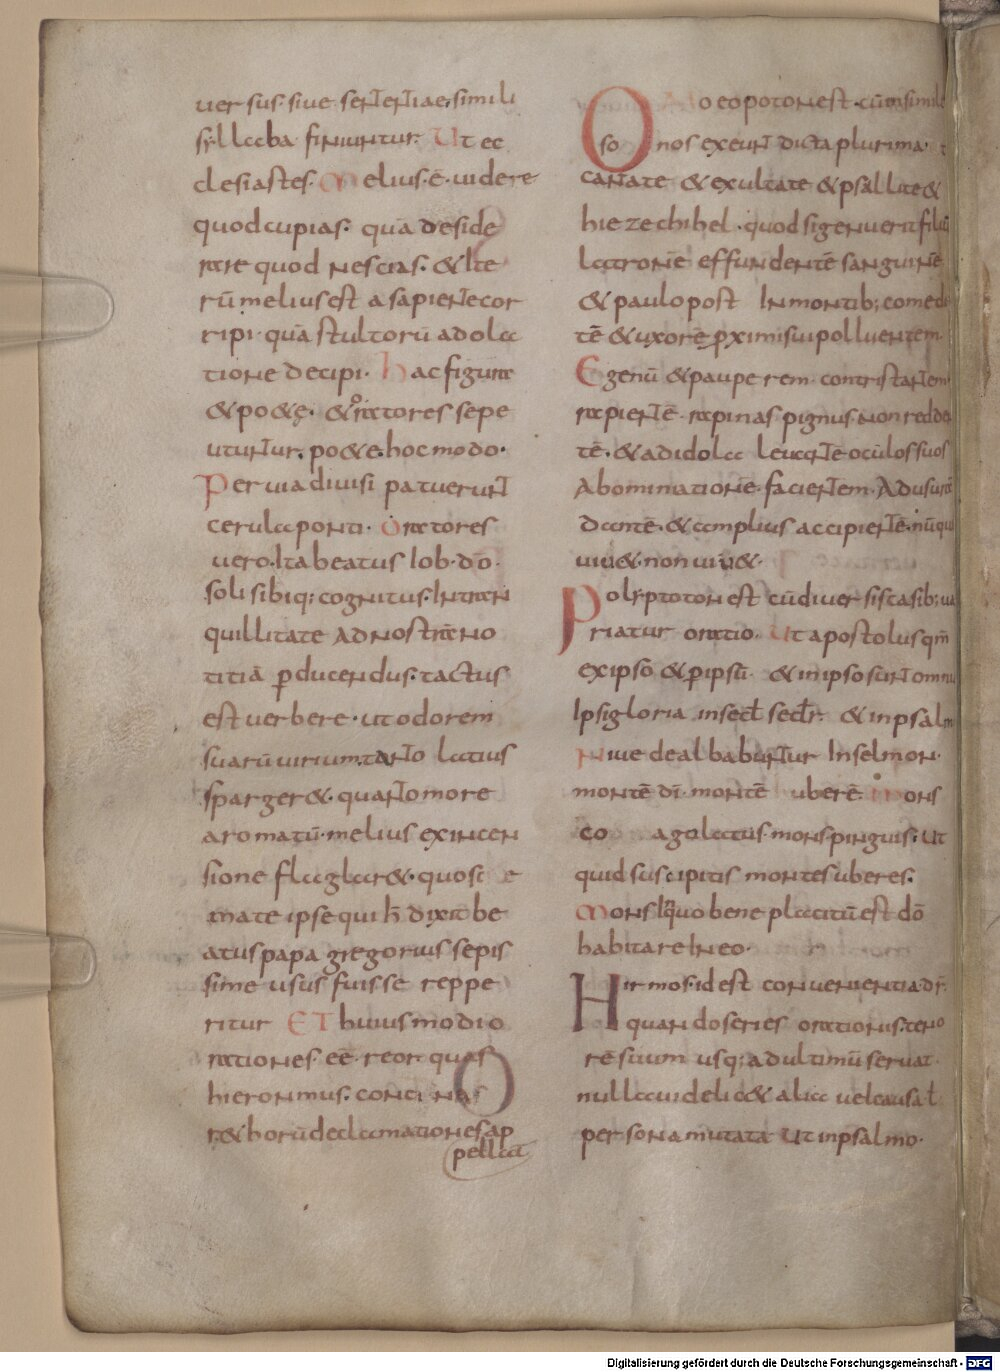 uersus. siue sententiae. simili
syllaba finiuntur. Ut ec
clesiastes. Melius. ē. uidere
quod cupias. quā deside
rare quod nescias. & Ite
rū melius est a sapiente cor
ripi. quā stultorū adola
tione decipi. hac figura
& po&e. & oratores sepe
utuntur. po&e. hoc modo.
Per uia diuisi patuerunt
cerula ponti. Oratores
uero. Ita beatus Iob. dō.
soli sibiq; cognitus. In tran
quillitate ad nostrā no
titiā perducendus. tactus
est uerbere. ut odorem
suarū uirium. tanto latius
sparger&. quanto more
aromatū. melius ex incen
sione flaglar&. quo sc e
mate ipse qui h̄ dixit be
atus papa gregorius sepis
sime usus fuisse reppe
ritur ET huius modi o
rationes. eē. reor. quas
hieronimus. concinnas
r&horū declamationes ap
pellat
Omoeopototon est. cū in simile
so nos exeunt dicta plurima. t
cantate & exultate & psallite &
hiezechihel. quod si genuerit filiū
latronē effundentē sanguinē
& paulo post In montib; comede
tē & uxorē pximi sui polluentem.
Egenū & pauperem. contristantem
rapientē. rapinas. pignus. non redden
tē. & ad idola leuantē oculos suos
Abominationē. facientem. Ad usurā
dantē. & amplius accipientē. nūqui
uiu& non uiu&.
Polyptoton est cū diuersis casib; ua
riatur oratio. Ut apostolus qm̄
ex ipso & p ipsū. & in ipso sunt omnia
Ipsi gloria in secl̄ seclr̄. & in psalm
Niue dealbabuntur In selmon.
montē dī. montē uberē. Mons
co agolatus. mons pinguis. Ut
quid suscipitis montes uberes.
Mons In quo bene placitū est dō
habitare In eo.
Hirmos. id est conuenientia. dr̄.
quando series orationis. teno
rē suum usq; ad ultimū seruat.
nulla uideli c& alia uel causa l
persona mutata Ut in psalmo.
Digitalisierung gefördert durch die Deutsche Forschungsgemeinschaft - DFG